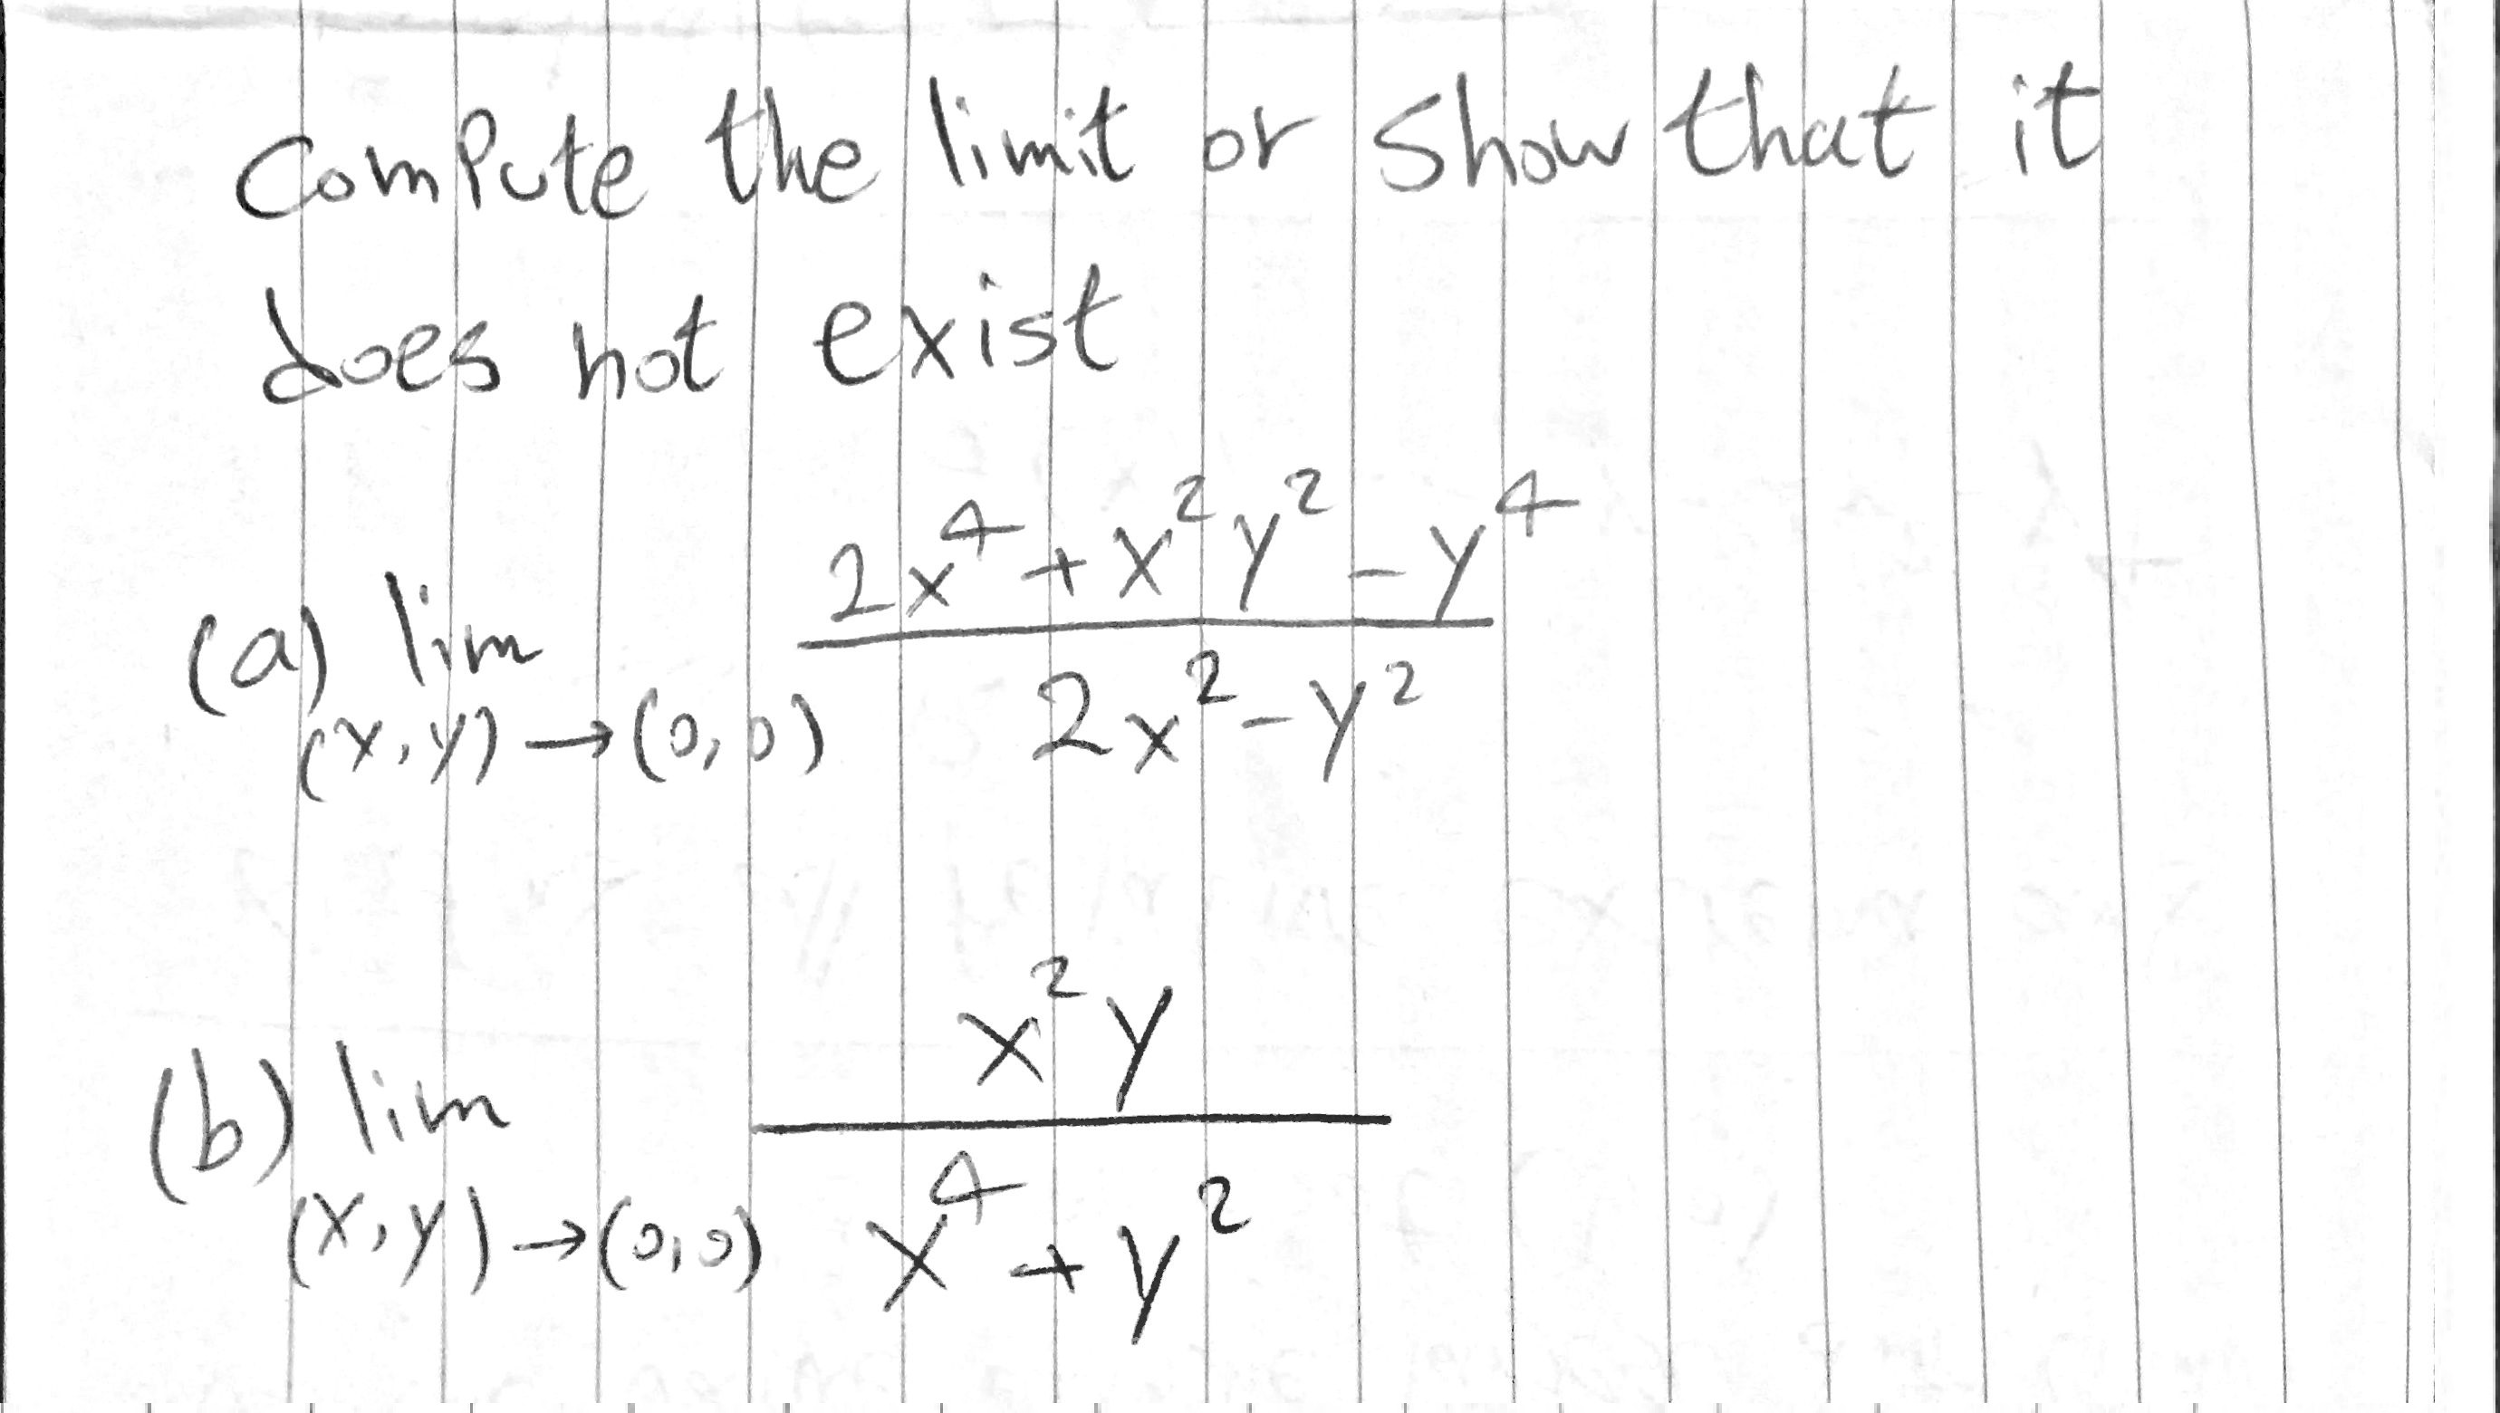 Compute the limit or show that it
does not exist
(a) lim_{(x,y)→(0,0)} \frac{2x^4+x^2y^2-y^4}{2x^2-y^2}
(b) lim_{(x,y)→(0,0)} \frac{x^2y}{x^4+y^2}